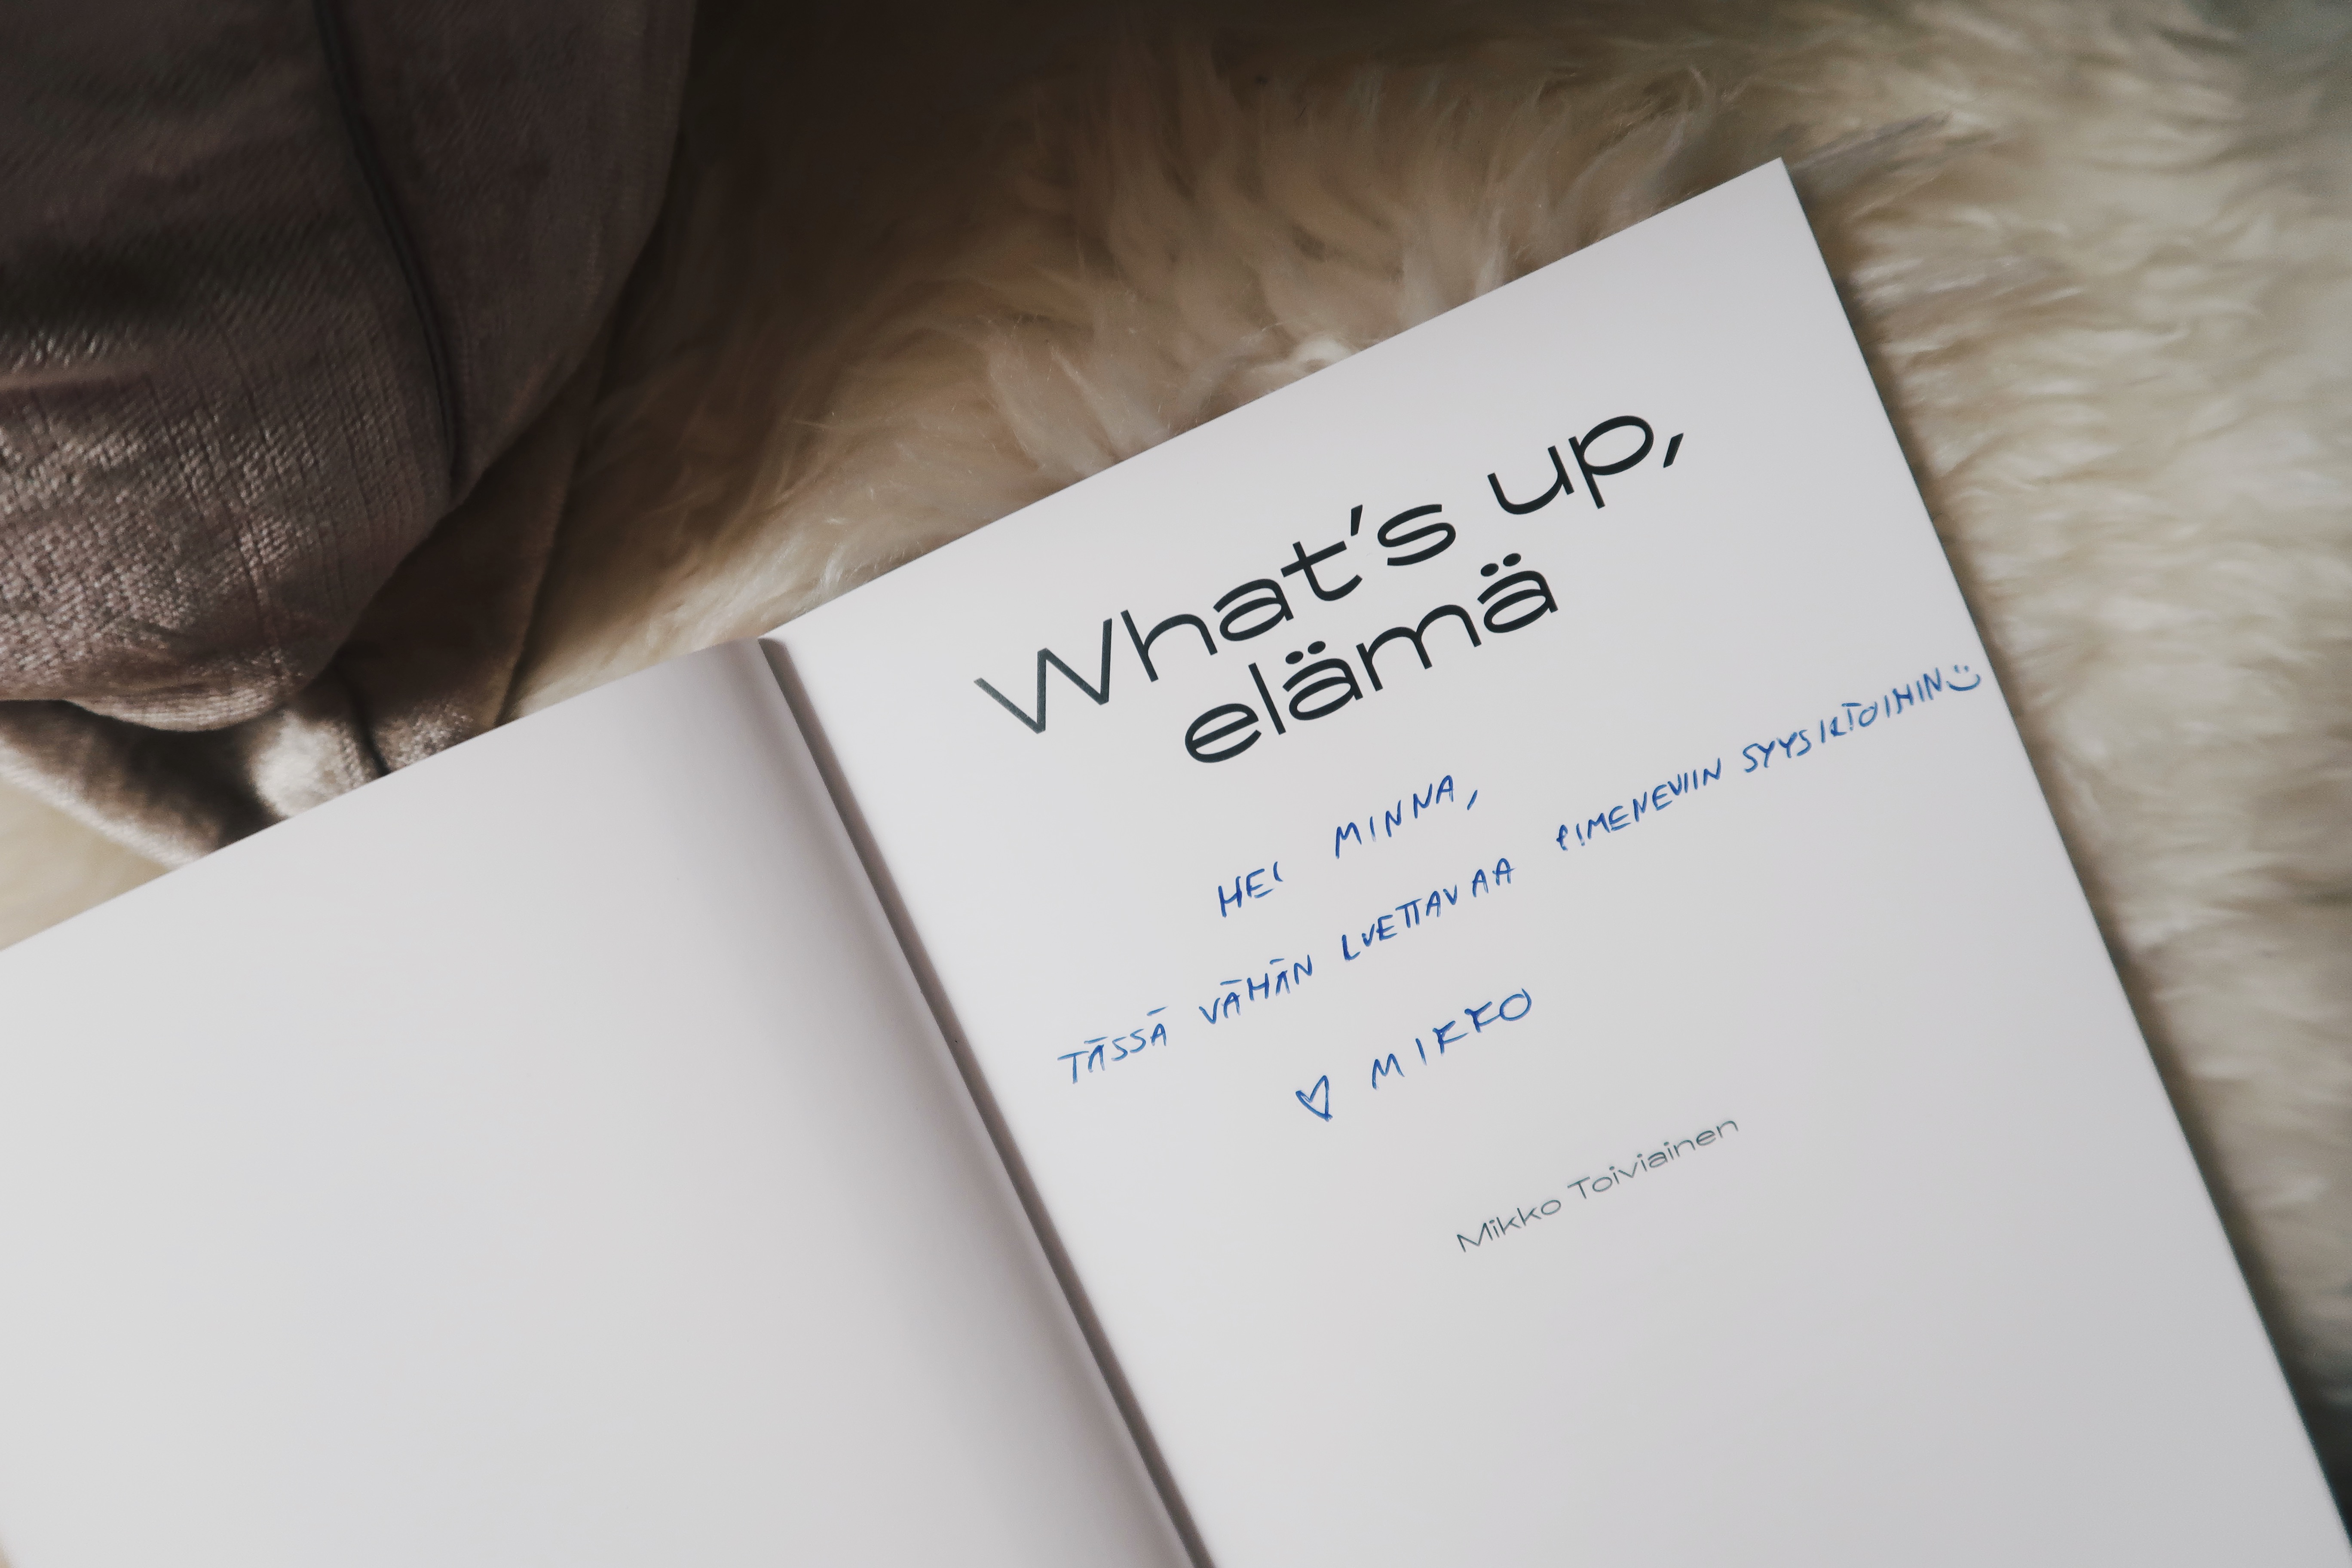 What's up,
elämä
HEI MINNA,
TÄSSÄ VÄHÄN LUETTAVAA PIMENEVIIN SYYSILTOIHIN :)
♡ MIKKO
Mikko Toiviainen